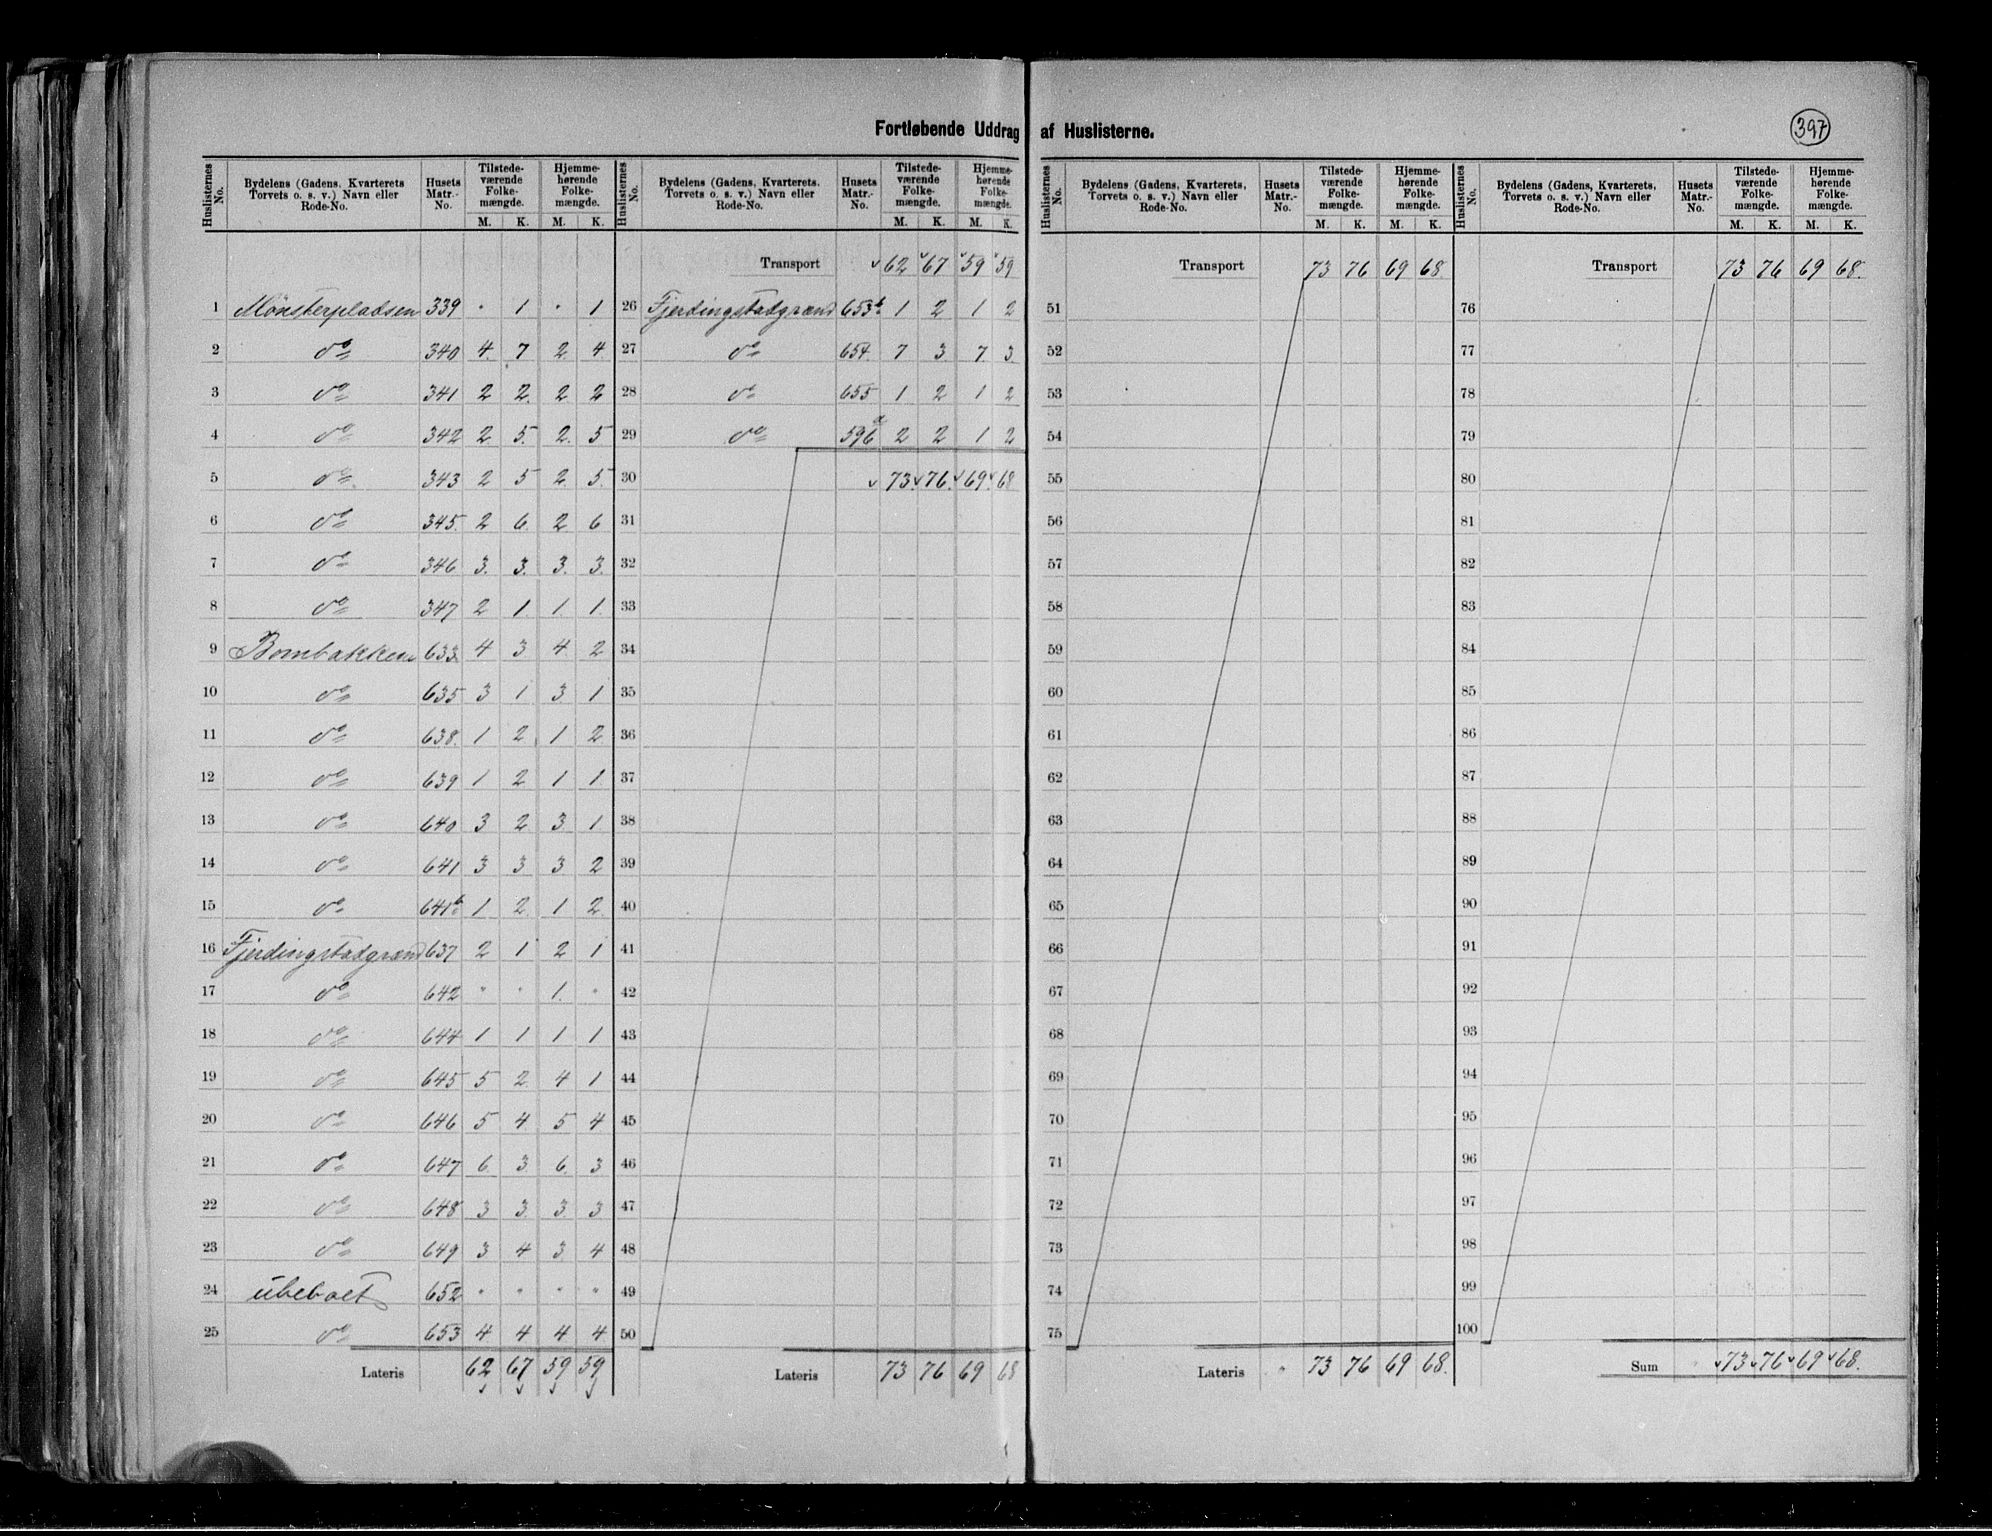 Fortløbende Uddrag af Huslisterne.
397
Huslisternes No. | Bydelens (Gadens, Kvarterets Torvets o. s. v.) Navn eller Rode-No. | Husets Matr.-No. | Tilstedeværende Folkemængde. M. K. | Hjemmehørende Folkemængde. M. K.
1 Mønsterpladsen 339 " 1 " 1
2 do 340 4 7 2 4
3 do 341 2 2 2 2
4 do 342 2 5 2 5
5 do 343 2 5 2 5
6 do 345 2 6 2 6
7 do 346 3 3 3 3
8 do 347 2 1 1 1
9 Bombakken 633 4 3 4 2
10 do 635 3 1 3 1
11 do 638 1 2 1 2
12 do 639 1 2 1 1
13 do 640 3 2 3 1
14 do 641 3 3 3 2
15 do 641b 1 2 1 2
16 Fjerdingstadgrænd 637 2 1 2 1
17 do 642 " " 1 "
18 do 644 1 1 1 1
19 do 645 5 2 4 1
20 do 646 5 4 5 4
21 do 647 6 3 6 3
22 do 648 3 3 3 3
23 do 649 3 4 3 4
24 ubeboet 652 " " " "
25 do 653 4 4 4 4
Lateris 62 67 59 59
Huslisternes No. | Bydelens (Gadens, Kvarterets, Torvets o. s. v.) Navn eller Rode-No. | Husets Matr.-No. | Tilstedeværende Folkemængde. M. K. | Hjemmehørende Folkemængde. M. K.
Transport 62 67 59 59
26 Fjerdingstadgrænd 653b 1 2 1 2
27 do 654 7 3 7 3
28 do 655 1 2 1 2
29 do 596a 2 2 1 2
30 73 76 69 68
31
32
33
34
35
36
37
38
39
40
41
42
43
44
45
46
47
48
49
50
Lateris 73 76 69 68
Huslisternes No. | Bydelens (Gadens, Kvarterets, Torvets o. s. v.) Navn eller Rode-No. | Husets Matr.-No. | Tilstedeværende Folkemængde. M. K. | Hjemmehørende Folkemængde. M. K.
Transport 73 76 69 68
51
52
53
54
55
56
57
58
59
60
61
62
63
64
65
66
67
68
69
70
71
72
73
74
75
Lateris " 73 76 69 68
Huslisternes No. | Bydelens (Gadens, Kvarterets, Torvets o. s. v.) Navn eller Rode-No. | Husets Matr.-No. | Tilstedeværende Folkemængde. M. K. | Hjemmehørende Folkemængde. M. K.
Transport 73 76 69 68
76
77
78
79
80
81
82
83
84
85
86
87
88
89
90
91
92
93
94
95
96
97
98
99
100
Sum 73 76 69 68